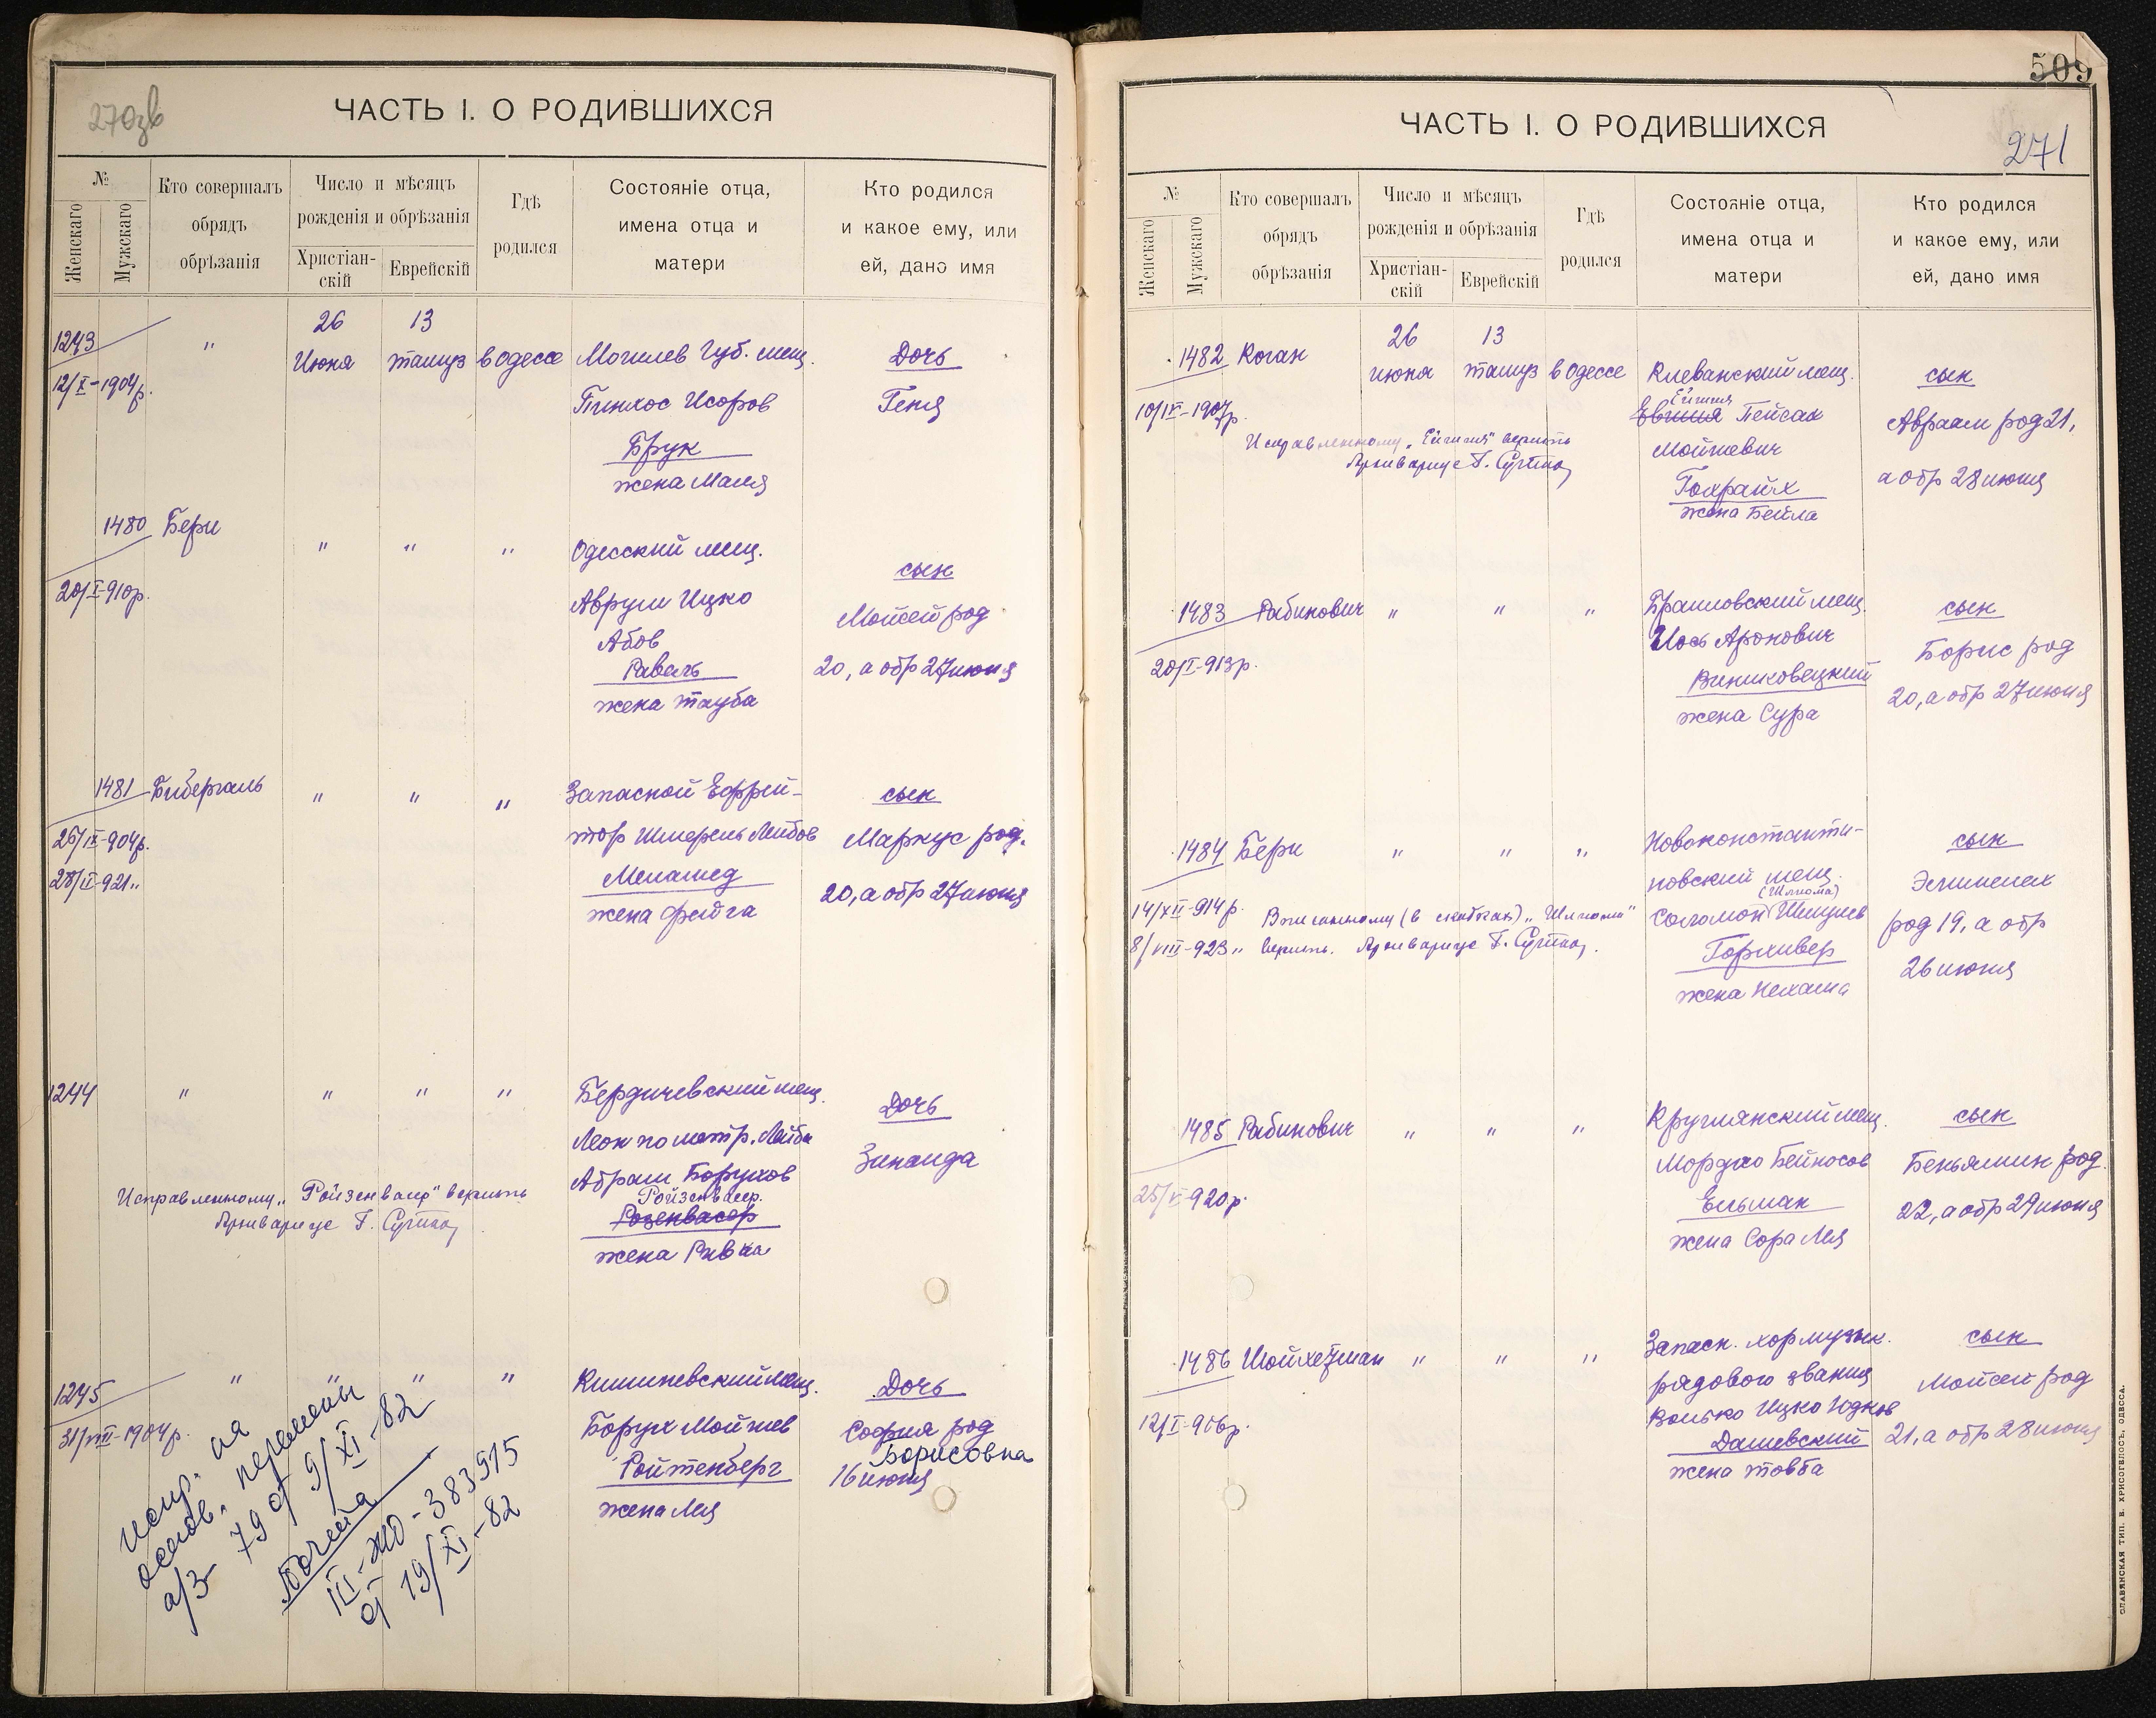 270зв
ЧАСТЬ I. О РОДИВШИХСЯ
№
Женскаго
Мужскаго
Кто совершалъ
обрядъ
обрѣзанія
Число и мѣсяцъ
рожденія и обрѣзанія
Христіан-
скій
Еврейскій
Гдѣ
родился
Состояніе отца,
имена отца и
матери
Кто родился
и какое ему, или
ей, дано имя
1243 " 26 Июня 13 тамуз в Одессе Могилев Губ. мещ. Дочь
12/X-1904р.
Пинхос Исоров Геня
Брук
жена Маля
1480 Бери " " " Одесский мещ.
сын
20/I-910р.
Аврум Ицко Мойсей род
Абов
Раваль 20, а обр 27 июня
жена Тауба
1481 Бибергаль " " " Запасной Ефрей- сын
26/IX-904р. тор Шмерель Лейбов Маркус род.
28/II-921 "
Меламед 20, а обр 27 июня
жена Фейга
1244 " " " " Бердичевский мещ. Дочь
Леон по метр. Лейба
Абрам Борухов Зинаида
Исправленному „Ройзенвасер" верить Ройзенвасер.
Архивариус Г.
Розенвасер
жена Ривка
1245 " " " " Кишиневский мещ. Дочь
31/VIII-1904р.
Борух Мойшев София род
Борисовна
Ройтенберг 16 июня
жена Лея
испр. на
основ. перемены
а/з 79 от 9/XI-82
III-ЖО-383515
от 19/XI-82
509
271
ЧАСТЬ I. О РОДИВШИХСЯ
№
Женскаго
Мужскаго
Кто совершалъ
обрядъ
обрѣзанія
Число и мѣсяцъ
рожденія и обрѣзанія
Христіан-
скій
Еврейскій
Гдѣ
родился
Состояніе отца,
имена отца и
матери
Кто родился
и какое ему, или
ей, дано имя
1482 Коган 26 июня 13 тамуз в Одессе Клеванский мещ. сын
Пейсах Авраам род 21,
Мойшевич
Исправленному верить
Архивариус Г.
Гохрайх а обр 28 июня
жена Бейла
1483 Рабинович " " " Браиловский мещ. сын
Иось Аронович Борис род
20/I-913р.
Винниковецкий 20, а обр 27 июня
жена Сура
1484 Бери " " " Новоконстанти- сын
новский мещ.
(Шлиома)
14/XII-914р. Вписанному (в скобках) „Шлиома" Соломон род 19, а обр
8/VIII-923 " верить. Архивариус Г.
Горхивер 26 июня
жена Нехама
1485 Рабинович " " " Круглянский мещ. сын
Мордко Бейносов Беньямин род
25/V-920р.
Ельман 22, а обр 29 июня
жена Сора Лея
1486 Шойхетман " " " Запасн. хор музык. сын
рядового звания Мойсей род
12/I-906р.
Волько Ицко Юдков
Дашевский 21, а обр 28 июня
жена Товба
СЛАВЯНСКАЯ ТИП. В. ХРИСОГЕЛОСЪ, ОДЕССА.